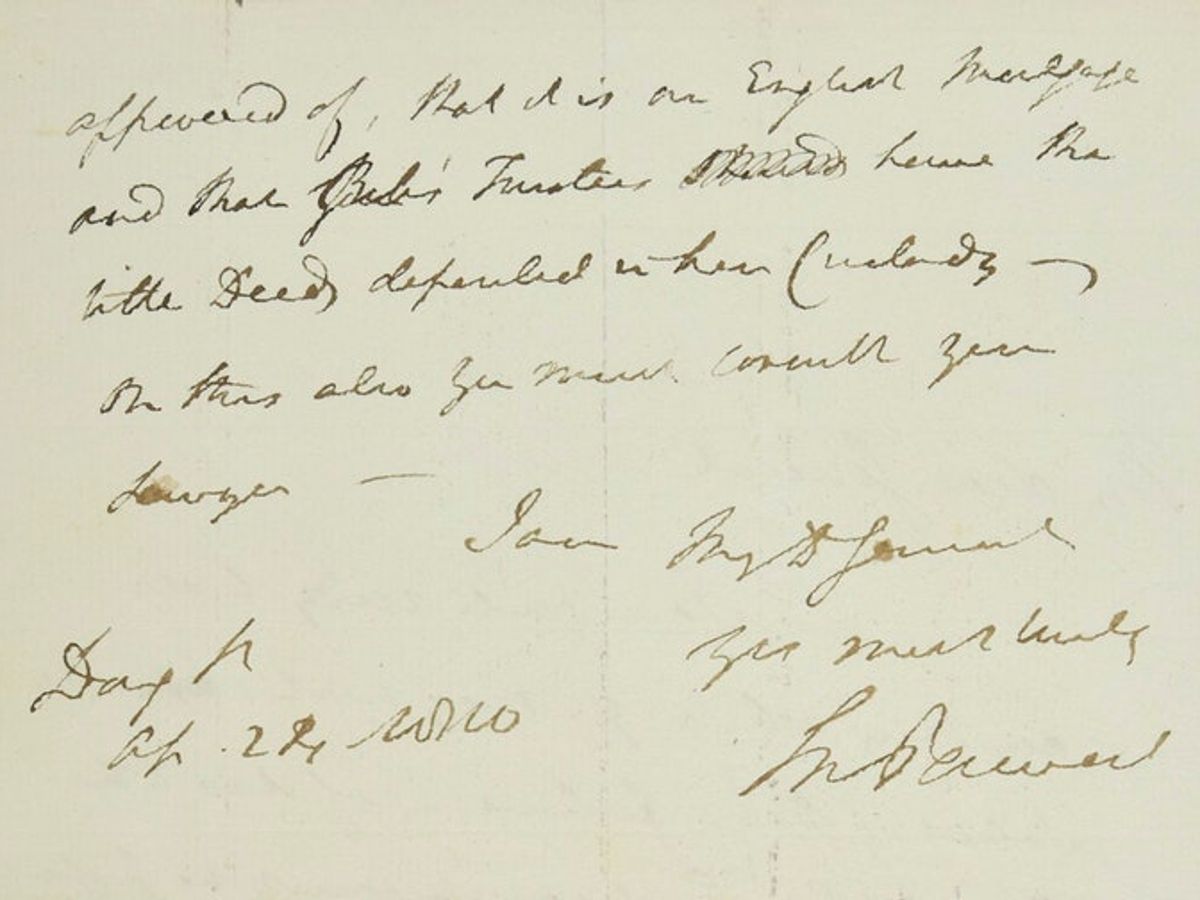 approved of, that it is an English Mortgage
and that Trustees have the
title Deeds deposited in their Custody —
On this also you must consult your
Lawyer —
I am My D General
Yrs most truly
Sp Perceval
Dong St
Ap. 24, 1810